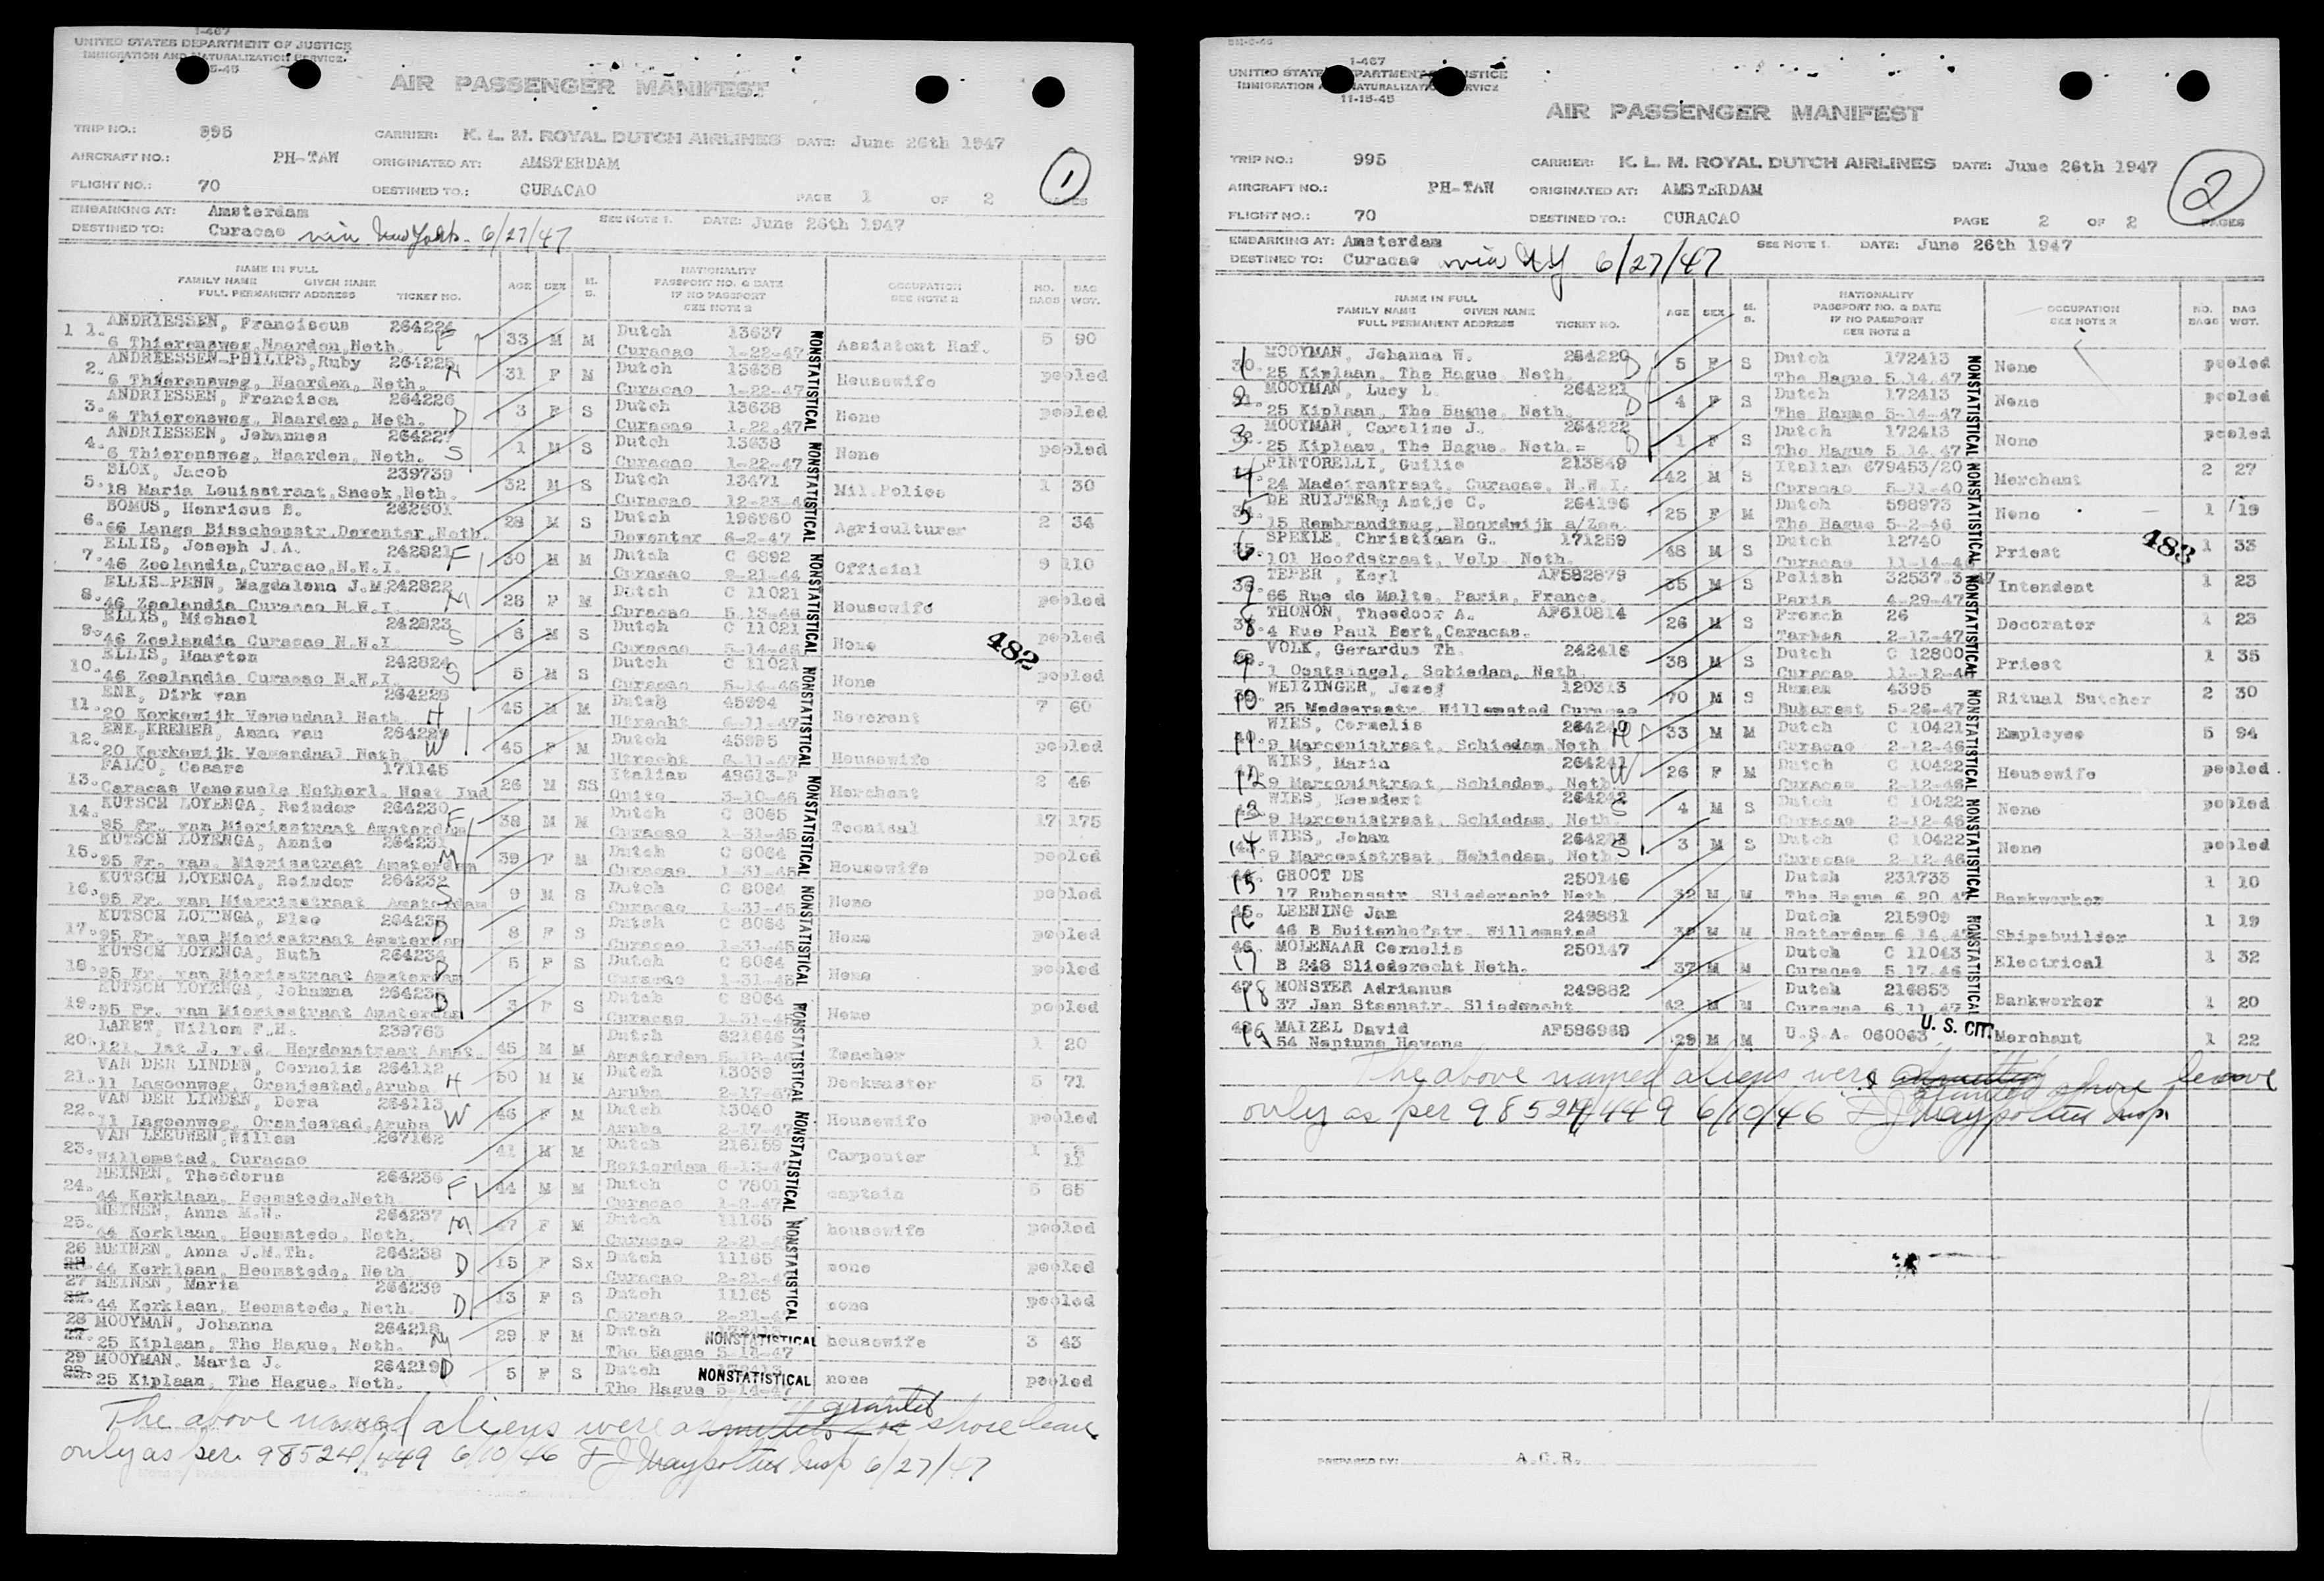 I-467
UNITED STATES DEPARTMENT OF JUSTICE
IMMIGRATION AND NATURALIZATION SERVICE
AIR PASSENGER MANIFEST
TRIP NO.: 995 CARRIER: K. L. M. ROYAL DUTCH AIRLINES DATE: June 26th 1947
AIRCRAFT NO.: PH-TAW ORIGINATED AT: AMSTERDAM
FLIGHT NO.: 70 DESTINED TO.: CURACAO PAGE 1 OF 2
1
EMBARKING AT: Amsterdam SEE NOTE 1. DATE: June 26th 1947
DESTINED TO: Curacao via New York 6/27/47
NAME IN FULL
FAMILY NAME GIVEN NAME
FULL PERMANENT ADDRESS TICKET NO.
AGE SEX M. S.
NATIONALITY
PASSPORT NO. & DATE
IF NO PASSPORT
SEE NOTE 2
OCCUPATION
SEE NOTE 2
NO. BAGS
BAG WGT.
1 1. ANDRIESSEN, Franciscus 264224 F 33 M M Dutch 13637 Assistent Raf. 5 90
6 Thierensweg, Naarden, Neth. Curacao 1-22-47
2. ANDRIESSEN PHILIPS, Ruby 264225 M 31 F M Dutch 13638 Housewife pooled
6 Thierensweg, Naarden, Neth. Curacao 1-22-47
3. ANDRIESSEN, Francisca 264226 D 3 F S Dutch 13638 None pooled
6 Thierensweg, Naarden, Neth. Curacao 1.22.47
4. ANDRIESSEN, Johannes 264227 S 1 M S Dutch 13638 None pooled
6 Thierensweg, Naarden, Neth. Curacao 1-22-47
5. BLOK, Jacob 239739 32 M S Dutch 13471 Mil.Police 1 30
18 Maria Louisstraat, Sneek, Neth. Curacao 12-23-46
6. BOMUS, Henricus B. 262601 28 M S Dutch 196960 Agriculturer 2 34
66 Lange Bisschopstr. Deventer, Neth. Deventer 6-2-47
7. ELLIS, Joseph J.A. 242821 F 30 M M Dutch C 6892 Official 9 110
46 Zeelandia, Curacao, N.W.I. Curacao 9-21-44
8. ELLIS PENN, Magdalena J.M 242822 M 28 F M Dutch C 11021 Housewife pooled
46 Zeelandia Curacao N.W.I. Curacao 5.13-46
9. ELLIS, Michael 242823 S 6 M S Dutch C 11021 None pooled
46 Zeelandia Curacao N.W.I. Curacao 5-14-46
482
10. ELLIS, Maarten 242824 S 5 M S Dutch C 11021 None pooled
46 Zeelandia Curacao N.W.I. Curacao 5-14-46
11. ENK, Dirk van 264228 H 45 M M Dutch 45994 Reverent 7 60
20 Kerkewijk Venendaal Neth. Utrecht 6-11-47
12. ENK, KREMER, Anna van 264229 W 45 F M Dutch 45995 Housewife pooled
20 Kerkewijk Venendaal Neth. Utrecht 6-11-47
13. FALCO, Cesare 171145 26 M SS Italian 49613-P Merchant 2 46
Caracas Venezuela Netherl. West Ind Quito 3-10-46
14. KUTSCH LOYENGA, Reinder 264230 F 38 M M Dutch C 8065 17 175
95 Fr. van Mierisstraat Amsterdam Curacao 1-31-45
15. KUTSCH LOYENGA, Annie 264231 M 39 F M Dutch C 8064 Housewife pooled
95 Fr. van. Mierisstraat Amsterdam Curacao 1-31-45
16. KUTSCH LOYENGA, Reinder 264232 S 9 M S Dutch C 8064 None pooled
95 Fr. van Mierrisstraat Amsterdam Curacao 1-31-45
17. KUTSCH LOYENGA, Else 264233 D 8 F S Dutch C 8064 None pooled
95 Fr. van Mierisstraat Amsterdam Curacao 1-31-45
18. KUTSCH LOYENGA, Ruth 264234 D 5 F S Dutch C 8064 None pooled
95 Fr. van Mierisstraat Amsterdam Curacao 1-31-45
19. KUTSCH LOYENGA, Johanna 264235 D 3 F S Dutch C 8064 None pooled
95 Fr. van Mierisstraat Amsterdam Curacao 1-31-45
20. LARET, Willem F.H. 239765 45 M M Dutch 621646 Teacher 1 20
121, 1st J. v.d. Heydenstraat Amst. Amsterdam 5-18-46
21. VAN DER LINDEN, Cornelis 264112 H 50 M M Dutch 13039 Dockmaster 5 71
11 Lagoenweg, Oranjestad, Aruba Aruba 2-17-47
22. VAN DER LINDEN, Dora 264113 W 46 F M Dutch 13040 Housewife pooled
11 Lagoenweg, Oranjestad, Aruba Aruba 2-17-47
23. VAN LEEUWEN, Willem 267162 41 M M Dutch 216159 Carpenter 1 11
Willemstad, Curacao Rotterdam 6-13-47
24. MEINEN, Theodorus 264236 F 44 M M Dutch C 7801 captain 6 85
44 Kerklaan, Heemstede, Neth Curacao 1-2-47
25. MEINEN, Anna M.W. 264237 M 47 F M Dutch 11165 housewife pooled
44 Kerklaan, Heemstede, Neth. Curacao 2-21-47
26 MEINEN, Anna J.M.Th. 264238 D 15 F Sx Dutch 11165 none pooled
44 Kerklaan, Heemstede, Neth. Curacao 2-21-47
27 MEINEN, Maria 264239 D 13 F S Dutch 11165 none pooled
44 Kerklaan, Heemstede, Neth. Curacao 2-21-47
28 MOOYMAN, Johanna 264218 M 29 F M Dutch NONSTATISTICAL housewife 3 43
25 Kiplaan, The Hague, Neth. The Hague 5-14-47
29 MOOYMAN, Maria J. 264219 D 5 F S Dutch NONSTATISTICAL none pooled
25 Kiplaan, The Hague. Neth. The Hague 5-14-47
NONSTATISTICAL NONSTATISTICAL NONSTATISTICAL NONSTATISTICAL NONSTATISTICAL NONSTATISTICAL NONSTATISTICAL NONSTATISTICAL NONSTATISTICAL
The above named aliens were admitted for granted shore leave
only as per 98524/449 6/10/46 Insp 6/27/47
I-467
UNITED STATES DEPARTMENT OF JUSTICE
IMMIGRATION AND NATURALIZATION SERVICE
11-15-45
AIR PASSENGER MANIFEST
TRIP NO.: 995 CARRIER: K. L. M. ROYAL DUTCH AIRLINES DATE: June 26th 1947
AIRCRAFT NO.: PH-TAW ORIGINATED AT: AMSTERDAM
FLIGHT NO.: 70 DESTINED TO.: CURACAO PAGE 2 OF 2 PAGES
2
EMBARKING AT: Amsterdam SEE NOTE 1. DATE: June 26th 1947
DESTINED TO: Curacao via NY 6/27/47
NAME IN FULL
FAMILY NAME GIVEN NAME
FULL PERMANENT ADDRESS TICKET NO.
AGE SEX M. S.
NATIONALITY
PASSPORT NO. & DATE
IF NO PASSPORT
SEE NOTE 2
OCCUPATION
SEE NOTE 2
NO. BAGS
BAG WGT.
1 30. MOOYMAN, Johanna W. 264220 D 5 F S Dutch 172413 None pooled
25 Kiplaan, The Hague Neth. The Hague 5.14.47
2 MOOYMAN, Lucy L. 264221 D 4 F S Dutch 172413 None pooled
25 Kiplaan, The Hague. Neth. The Hague 5-14-47
3 MOOYMAN, Caroline J. 264222 D 1 F S Dutch 172413 None pooled
25 Kiplaan, The Hague. Neth.= The Hague 5.14.47
4 PINTORELLI, Guilio 213849 42 M S Italian 679453/20 Merchant 2 27
24 Madeirastraat, Curacao, N.W.I. Curacao 5-11-40
5 DE RUIJTER, Antje C. 264196 25 F M Dutch 598973 None 1 19
15 Rembrandtweg, Noordwijk a/Zee. The Hague 5-2-46
6 SPEKLE, Christiaan G. 171259 48 M S Dutch 12740 Priest 1 33
101 Hoofdstraat, Velp, Neth. Curacao 11-14-46
483
7 TEPER, Keyl AF582879 35 M S Polish 32537.3 Intendent 1 23
66 Rue de Malte, Paris, France. Paris 4-29-47
8 THONON, Theodoor A. AF610814 26 M S French 26 Decorater 1 23
4 Rue Paul Bert, Caracas. Tarbes 2-13-47
9 VOLK, Gerardus Th. 242416 38 M S Dutch C 12800 Priest 1 35
1 Oostsingel, Schiedam, Neth. Curacao 11-12-46
10 WEIZINGER, Jozef 120313 70 M S Rumen 4395 Ritual Butcher 2 30
25 Madoerastr. Willemstad Curacao Bukarest 5-26-47
11 WIES, Cornelis 264240 H 33 M M Dutch C 10421 Employee 5 94
9 Marconistraat, Schiedam Neth Curacao 2-12-46
12 WIES, Maria 264241 W 26 F M Dutch C 10422 Housewife pooled
9 Marconistraat, Schiedam, Neth. Curacao 2-12-46
13 WIES, Meendert 264242 S 4 M S Dutch C 10422 None pooled
9 Marconistraat, Schiedam, Neth. Curacao 2-12-46
14 WIES, Johan 264243 S 3 M S Dutch C 10422 None pooled
9 Marconistraat, Schiedam, Neth. Curacao 2-12-46
15 GROOT DE 250146 32 M M Dutch 231733 Bankworker 1 10
17 Rubensstr. Sliedrecht Neth. The Hague 6.20.47
16 45. LEENING Jan 249881 M M Dutch 215909 Shipsbuilder 1 19
46 B Buitenhofstr. Willemstad Rotterdam 6.14.47
17 46. MOLENAAR Cornelis 250147 37 M M Dutch C 11043 Electrical 1 32
B 248 Sliedrecht Neth. Curacao 5.17.46
18 47. MONSTER Adrianus 249882 42 M M Dutch 216853 Bankworker 1 20
37 Jan Steenstr. Sliedrecht Curacao 6.11.47
19 MAIZEL David AF586968 29 M M U.S.A. 060063 U. S. CIT. Merchant 1 22
54 Neptuna Havana
NONSTATISTICAL NONSTATISTICAL NONSTATISTICAL NONSTATISTICAL NONSTATISTICAL NONSTATISTICAL
The above named aliens were admitted granted shore leave
only as per 98524/449 6/10/46 Insp.
PREPARED BY: A.C.R.